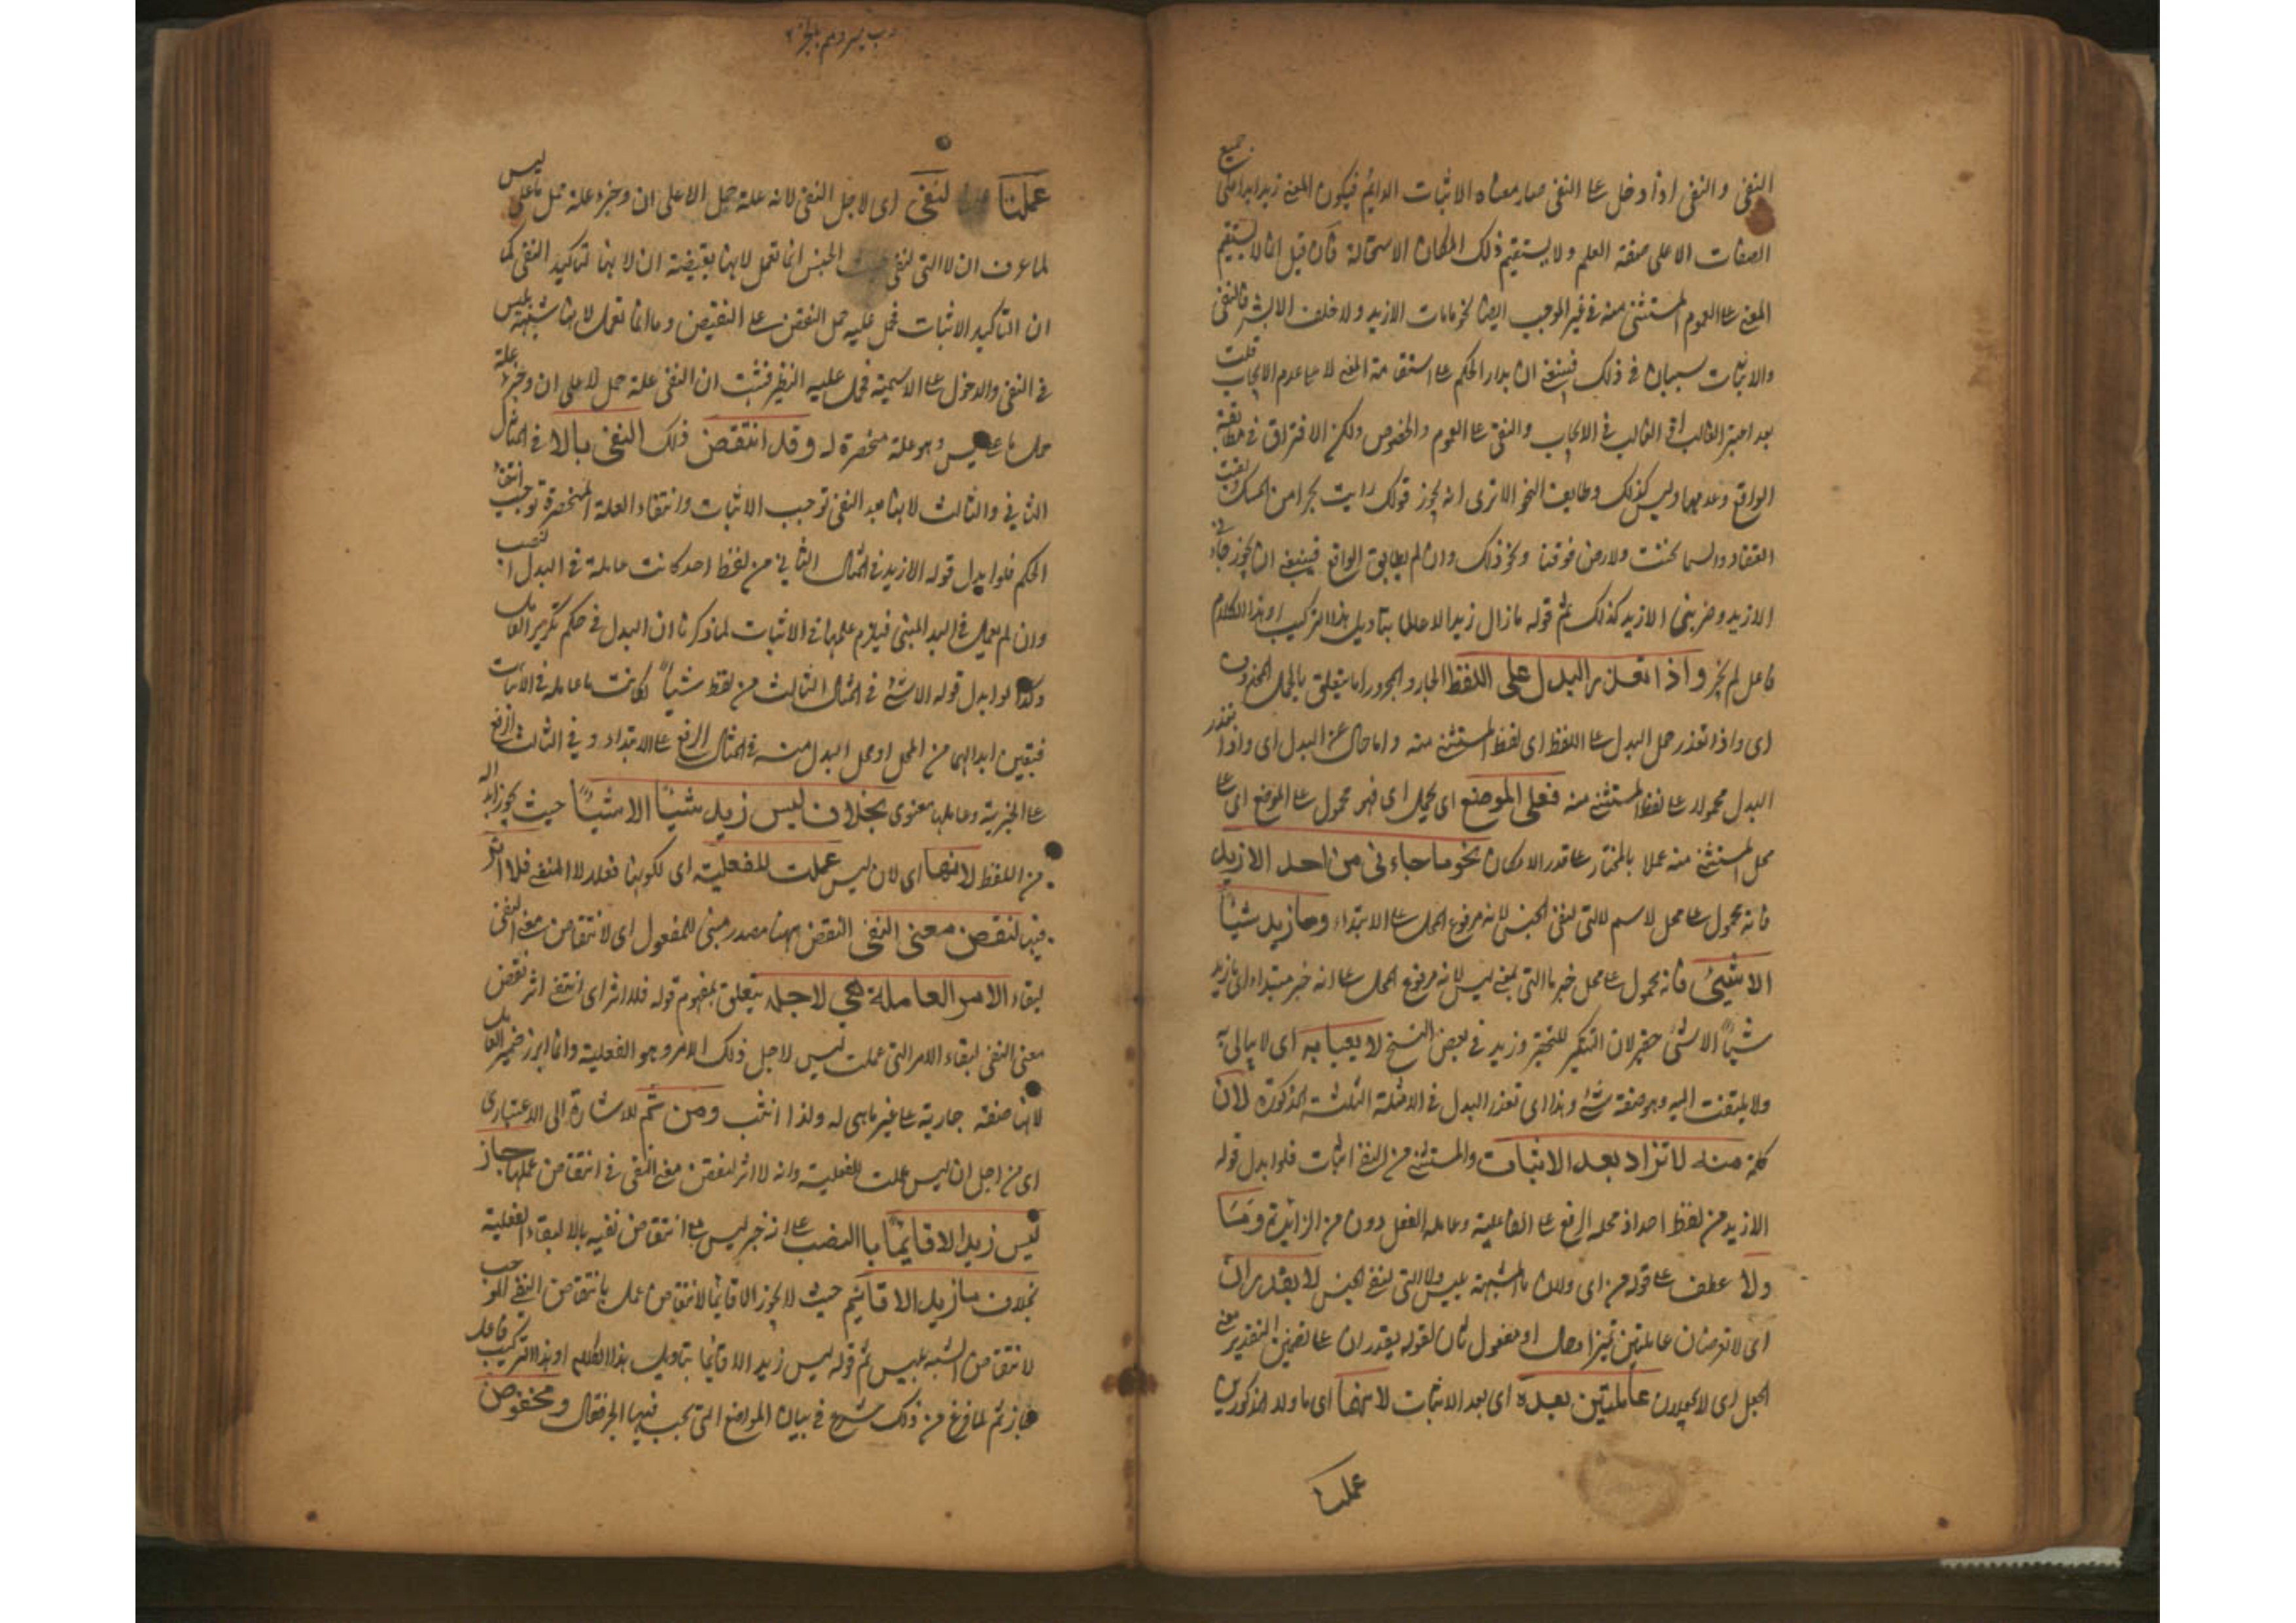 النفى والنفى اذا دخل على النفى صار معناه الاثبات الدايم فيكون المعنى زيد ابدا على جميع
الصفات الا على صفة العلم ولا يستقيم ذلك لمكان الاستحالة فان قيل ان لا يستقيم
المعنى على العموم المستثنى منه فى غير الموجب ايضا نحو ما مات الا زيد ولا خلف الا بشر فالنفى
والاثبات سيان فى ذلك فينبغى ان يدار الحكم على استقامة المعنى لا على عدم الايجاب قلت
الغالب فى الايجاب والنفى على العموم والخصوص ولكن الافتراق فى مطابقة
الواقع وعدمها وليس كذلك وظايف النحو الا ترى انه يجوز قولك رايت بحرا من المسك
والسما تحتنا والارض فوقنا ونحو ذلك وان لم يطابق الواقع فينبغى ان يجوز جاءنى
الا زيد وضربنى الا زيد كذلك ثم قوله ما زال زيد الا عالما بتاويل هذا التركيب او هذا الكلام
فاعل لم يجز واذا تعذر البدل على اللفظ الجار والمجرور اما يتعلق بالحمل المحذوف
اى واذا تعذر حمل البدل على اللفظ اى لفظ المستثنى منه واما حال عن البدل اى واذا تعذر
البدل محمولا على لفظ المستثنى منه فعلى الموضع اى يحمل اى فهو محمول على الموضع اى على
محل المستثنى منه عملا بالمختار على قدر الامكان نحو ما جاءنى من احد الا زيد
فانه محمول على محل لاسم لا التى لنفى الجنس لانه مرفوع المحل على الابتداء وما زيد شيئا
الا شيئ فانه محمول على محل خبر ما التى بمعنى ليس لانه مرفوع المحل على انه خبر مبتداء اى ما زيد
شيئا الا شئ حقير لان التنكير للتحقير وزيد فى بعض النسخ لا يعبا به اى لا يبالى به
ولا يلتفت اليه وهو صفة شئ وهذا اى تعذر البدل فى الامثلة الثلثة المذكورة لان
كلمة من لا تزاد بعد الاثبات والمستثنى من النفى اثبات فلو ابدل قوله
الا زيد من لفظ احد اذ محله الرفع على الفاعلية وعامله الفعل دون من الزائدة وما
ولا عطف على قوله من اى ولان ما المشبهة بليس ولا التى لنفى الجنس لا يقدران
اى لا تفرضان عاملتين تميز او حال او مفعول ثان لقوله يقدران على تضمين التقدير معنى
الجعل اى لا يجعلان عاملتين بعده اى بعد الاثبات لانهما اى ما ولا المذكورين
عملتا
عملتا لنفى اى لاجل النفى لانه علة حمل لا على ان وجزء علة حمل ما على ليس
لما عرف ان لا التى لنفى الجنس انما تعمل لانها نقيضة ان لانها لتاكيد النفى كما
ان التاكيد الاثبات فحمل عليه حمل النقيض على النقيض وما انما تعمل لانها شبيهة بليس
فى النفى والدخول على الاسمية فحمل عليه النظير فثبت ان النفى علة حمل لا على ان وجزء علة
حمل ما على ليس وهو علة منحصرة له وقد انتقض ذلك النفى بالا فى المثال
الثانى والثالث لانها بعد النفى توجب الاثبات وانتفاء العلة المنحصرة توجب انتفاء
الحكم فلو ابدل قوله الا زيد فى المثال الثانى من لفظ احد كانت عاملة فى البدل النصب
وان لم يعمل فى المبنى فيلزم عملها فى الاثبات لما ذكرنا ان البدل فى حكم تكرير العامل
وكذا لو ابدل قوله الا شئ فى المثال الثالث من لفظ شيئا لكانت ما عاملة فى الاثبات
فتعين ابدالهما من المحل او محل البدل منه فى المثال الرفع على الابتداء وفى الثالث الرفع
على الخبرية وعاملها معنوى بخلاف ليس زيد شيئا الا شيئا حيث يجوز ابداله
من اللفظ لانها اى لان ليس عملت للفعلية اى لكونها فعلا لا للنفى فلا اثر
فيها لنقض معنى النفى النقض ههنا مصدر مبنى للمفعول اى لانتقاض معنى النفى
لبقاء الامر العاملة هى لاجله يتعلق بمفهوم قوله فلا اثر اى انتفى اثر نقض
معنى النفى لبقاء الامر التى عملت ليس لاجل ذلك الامر وهو الفعلية وانما ابرز ضمير العامل
لانها صفة جارية على غير ما هى له ولذا انثت ومن ثم للاشارة الى الاعتبارى
اى من اجل ان ليس عملت للفعلية وانه لا اثر لنقض معنى النفى فى انتقاض عملها جاز
ليس زيد الا قايما بالنصب على انه خبر ليس مع انتقاض نفيه بالا لبقاء الفعلية
بخلاف ما زيد الا قائم حيث لا يجوز الا قائما لانتقاض عمل ما بانتقاض النفى الموجب
لانتقاض الشبه بليس ثم قوله ليس زيد الا قائما بتاويل هذا الكلام او هذا التركيب فاعل
جاز ثم لما فرغ من ذلك شرع فى بيان المواضع التى يجب فيها الجر فقال ومخفوض